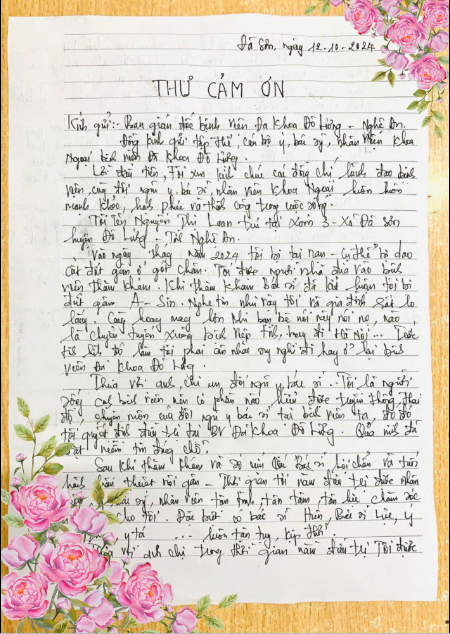 Đà Sơn, ngày 12-10-2024
THƯ CẢM ƠN
Kính gửi: Ban giám đốc bệnh viện Đa Khoa Đô Lương - Nghệ An.
Đồng kính gửi tập thể cán bộ y, bác sỹ, nhân viên khoa
Ngoại bệnh viện Đa Khoa Đô Lương.
Lời đầu tiên, Tôi xin kính chúc các đồng chí lãnh đạo bệnh
viện cùng đội ngũ y bác sĩ, nhân viên khoa Ngoại luôn luôn
mạnh khỏe, hạnh phúc và thành công trong cuộc sống.
Tôi tên Nguyễn Thị Loan trú tại xóm 3 - Xã Đà Sơn
huyện Đô Lương - Tỉnh Nghệ An.
Vào ngày tháng năm 2024 tôi bị tai nạn - cụ thể bị dao
cắt đứt gân ở gót chân. Tôi được người nhà đưa vào bệnh
viện thăm khám. Khi thăm khám bác sĩ đã kết luận tôi bị
đứt gân A - Sin. Nghe tin như vậy tôi và gia đình rất lo
lắng. Càng hoang mang hơn khi bạn bè nói này nói nọ, nào
là chuyển tuyến xương bệnh viện tỉnh, hay đi Hà Nội... Trước
tôi phải cân nhắc suy nghĩ đi hay ở lại bệnh
viện Đa khoa Đô Lương.
Thưa với anh chị em đội ngũ y bác sĩ. Tôi là người
cạnh bệnh viện nên có phần nào hiểu được truyền thống, thái
độ, chuyên môn của đội ngũ y bác sĩ tại bệnh viện ta, do đó
tôi quyết định điều trị tại BV Đa Khoa Đô Lương. Quả mình đã
đặt niềm tin đúng chỗ.
Sau khi thăm khám và được các Bác sĩ hội chẩn và tiến
hành phẫu thuật nối gân - Thời gian tôi nằm điều trị được nhân
bác sỹ, nhân viên tận tình, tận tâm tận lực chăm sóc
cho tôi. Đặc biệt có bác sĩ Hiền, Bác sĩ Lực, y
y tá ... luôn tận tụy, kịp thời.
với anh chị trong thời gian nằm điều trị Tôi được